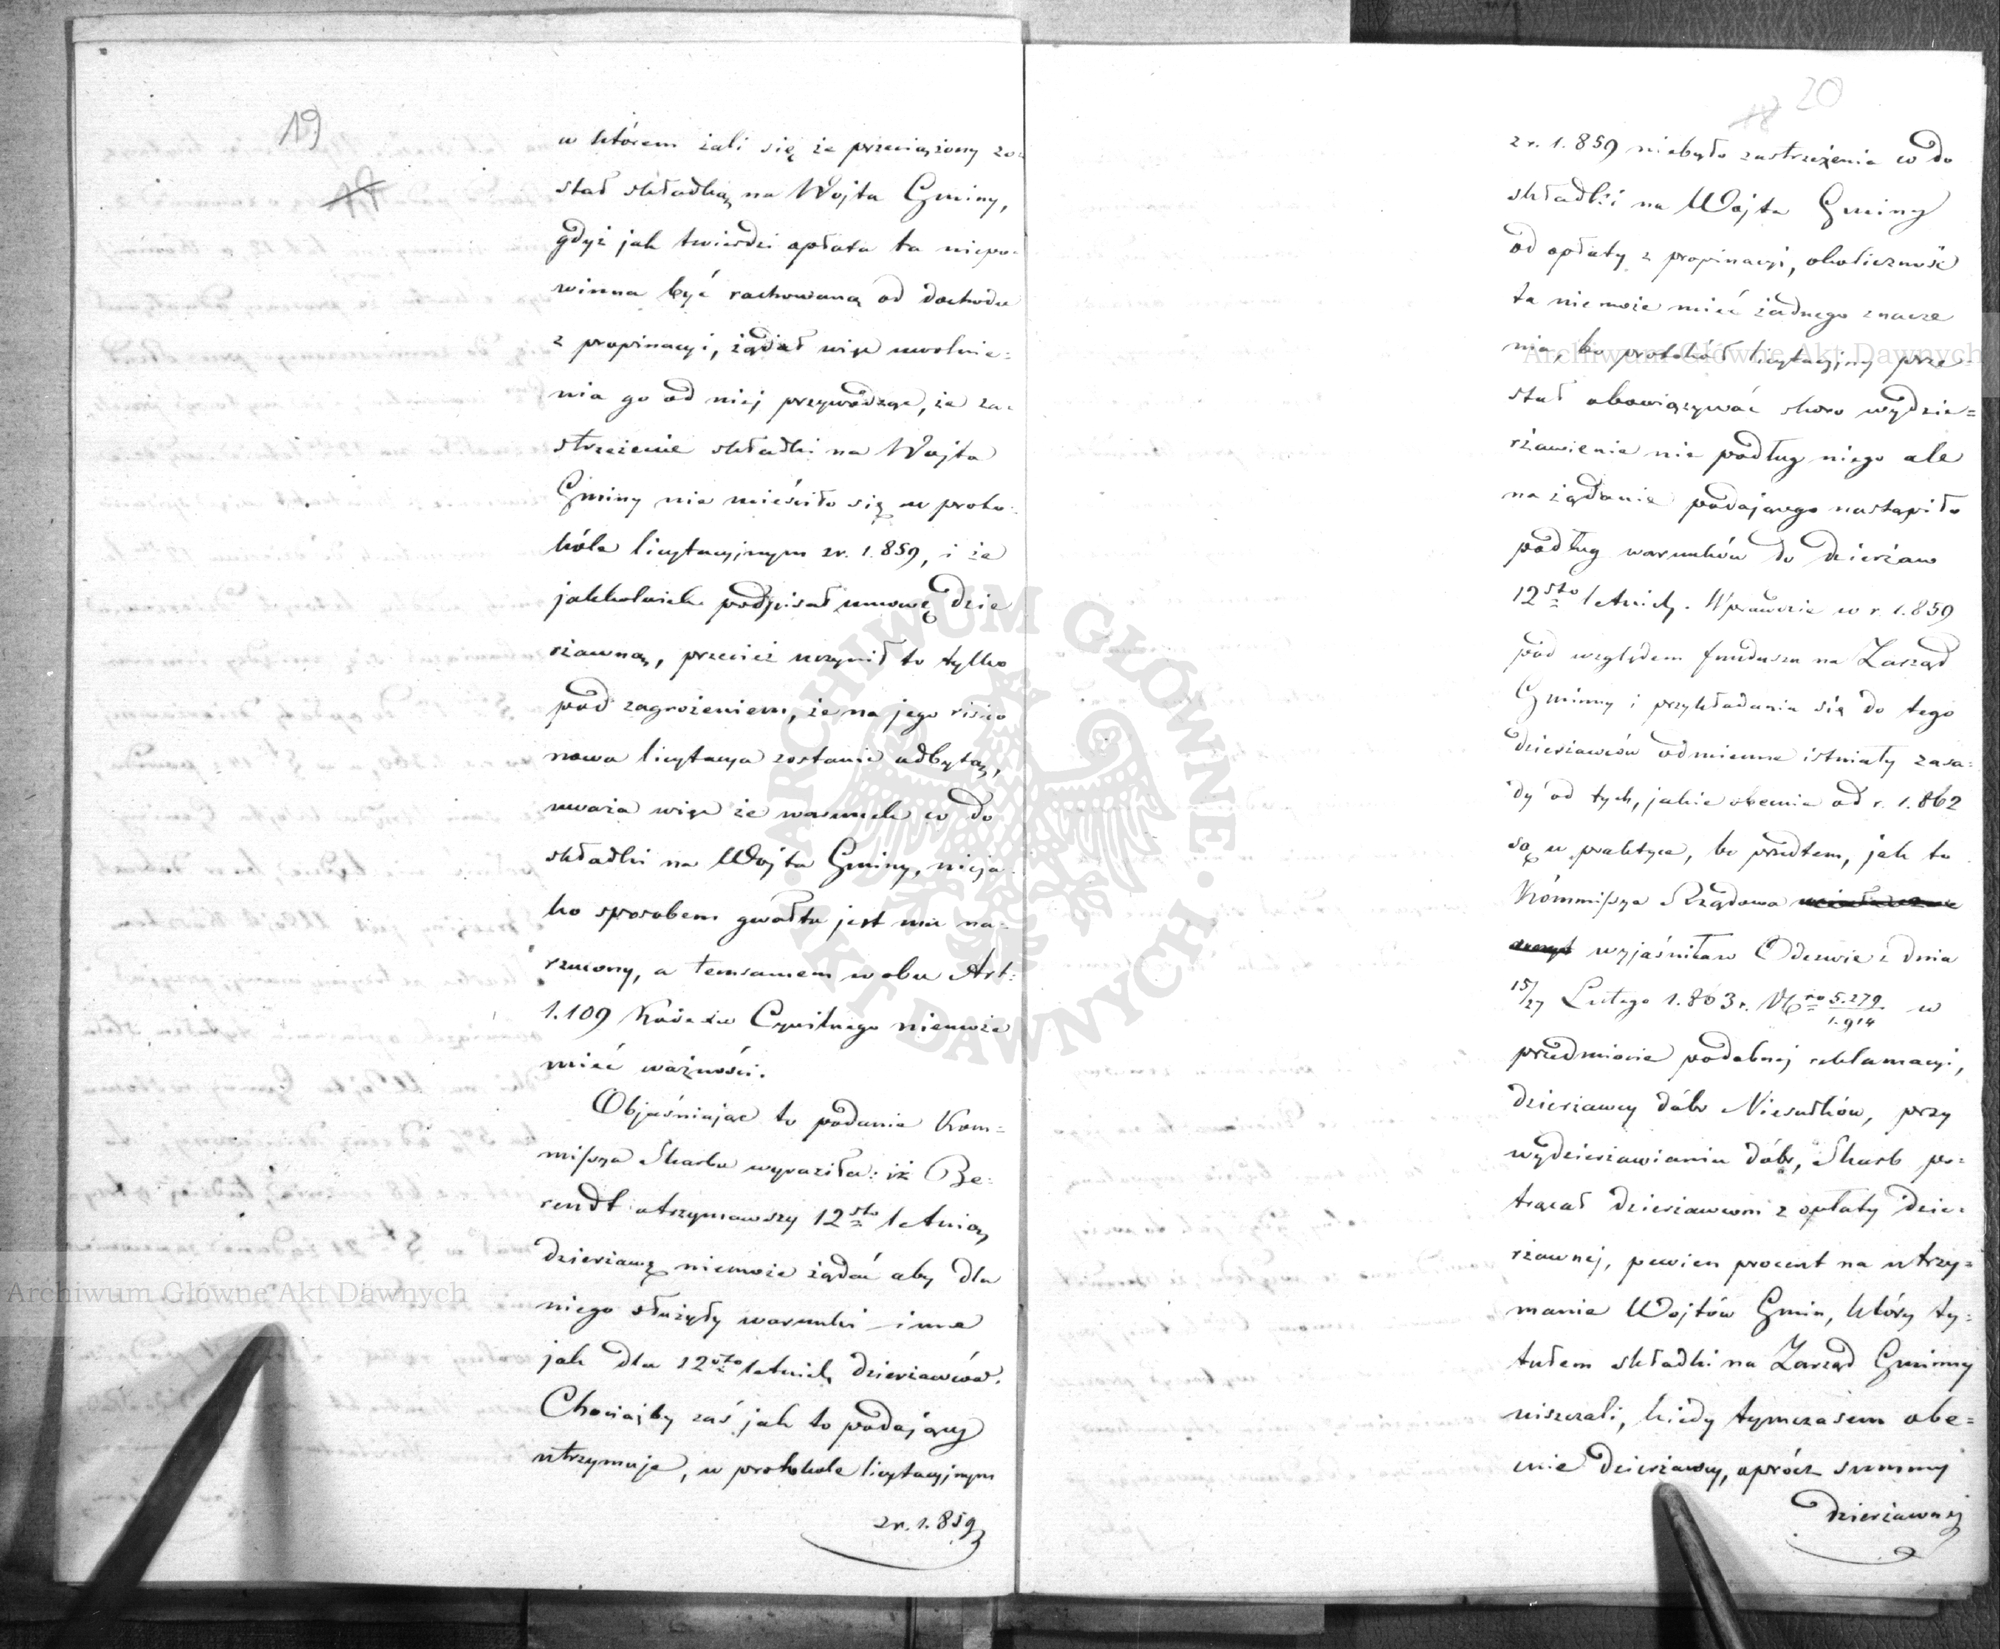 19
w którem żali się że przeciążony zo=
stał składką na Wójta Gminy,
gdyż jak twierdzi opłata ta niepo=
winna być rachowaną od dochodu
z propinacyi, żądał więc uwolnie=
nia go od niej przywodząc, że za=
strzeżenie składki na Wójta
Gminy nie mieściło się w proto=
kóle licytacyjnym z r. 1.859, i że
jakkolwiek podpisał umowę dzie
rżawną, przecież uczynił to tylko
pod zagrożeniem, że na jego risico
nowa licytacya zostanie odbytą,
uważa więc że warunek co do
składki na Wójta Gminy, nieja
ko sposobem gwałtu jest mu na=
rzucony, a temsamem wobec Art:
1.109 Kodexu Cywilnego niemoże
mieć ważności.
Objaśniając to podanie Kom=
missya Skarbu wyraziła: iż Be=
rendt otrzymawszy 12sto letnią
dzierżawę niemoże żądać aby dla
niego służyły warunki inne
jak dla 12sto letnich dzierżawców.
Chociażby zaś jak to podający
utrzymuje, w protokole licytacyjnym
z r. 1.859
20
18
z r. 1.859 niebyło zastrzeżenia co do
składki na Wójta Gminy
od opłaty z propinacyi, okoliczność
ta nie może mieć żadnego znacze
nia, bo protokół licytacyjny prze=
stał obowiązywać skoro wydzie=
rżawienie nie podług niego ale
na żądanie podającego nastąpiło
podług warunków do dzierżaw
12sto letnich. Wprawdzie w r. 1.859
pod względem funduszu na Zarząd
Gminny i przykładania się do tego
dzierżawców odmienne istniały zasa=
dy od tych, jakie obecnie od r. 1.862
są w praktyce, bo przedtem, jak to
Kommissya Rządowa
wyjaśniła w Odezwie z dnia
15/27 Lutego 1.863 r. Nro 5.279/1.914 w
przedmiocie podobnej reklamacyi,
dzierżawcy dóbr Niesułków, przy
wydzierżawianiu dóbr, Skarb po=
trącał dzierżawcom z opłaty dzie=
rżawnej, pewien procent na utrzy=
manie Wójtów Gmin, który ty=
tułem składki na Zarząd Gminny
niszczali, kiedy tymczasem obe=
cnie dzierżawcy, oprócz summy
dzierżawnej
Archiwum Główne Akt Dawnych
Archiwum Główne Akt Dawnych
ARCHIWUM GŁÓWNE · AKT DAWNYCH ·